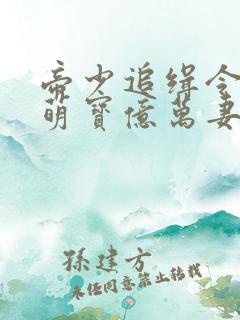 帝少追缉令
萌寳億萬妻
孫建方
未经同意禁止转载